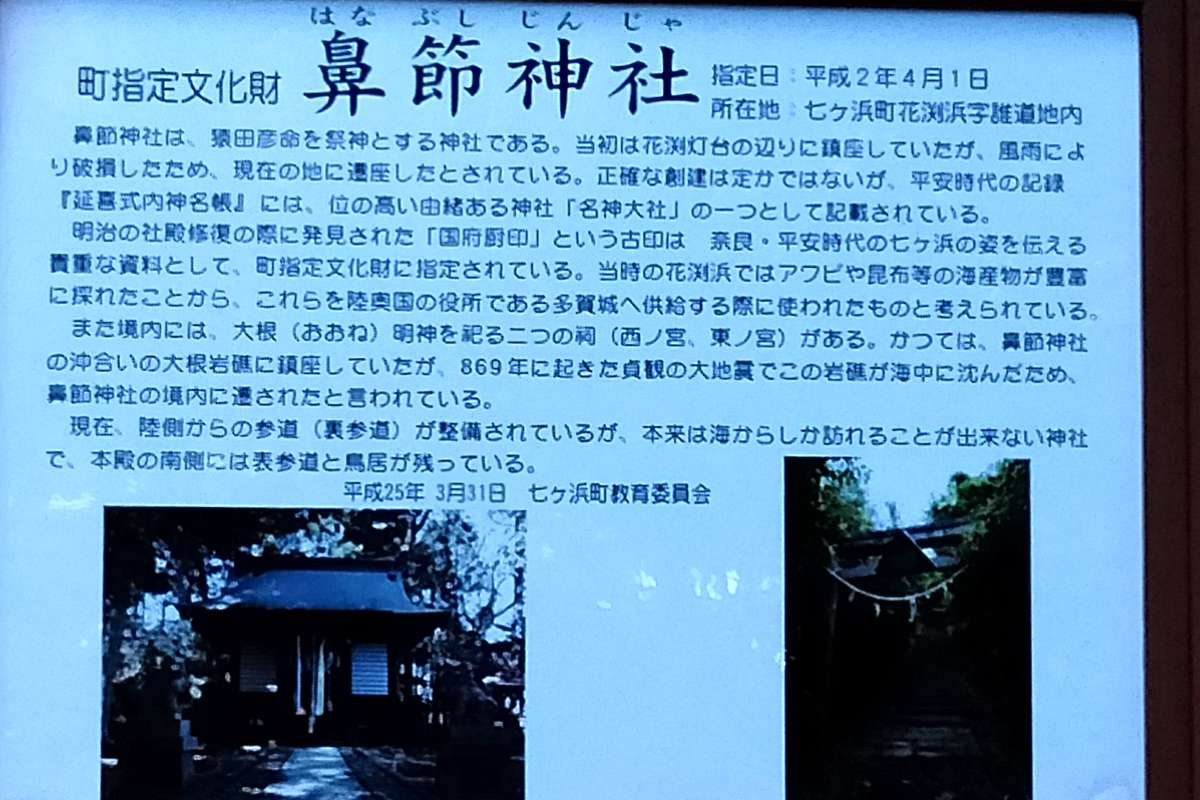 はなぶしじんじゃ
町指定文化財 鼻節神社
指定日：平成2年4月1日
所在地：七ヶ浜町花渕浜字誰道地内
鼻節神社は、猿田彦命を祭神とする神社である。当初は花渕灯台の辺りに鎮座していたが、風雨によ
り破損したため、現在の地に遷座したとされている。正確な創建は定かではないが、平安時代の記録
『延喜式内神名帳』には、位の高い由緒ある神社「名神大社」の一つとして記載されている。
明治の社殿修復の際に発見された「国府厨印」という古印は 奈良・平安時代の七ヶ浜の姿を伝える
貴重な資料として、町指定文化財に指定されている。当時の花渕浜ではアワビや昆布等の海産物が豊富
に採れたことから、これらを陸奥国の役所である多賀城へ供給する際に使われたものと考えられている。
また境内には、大根（おおね）明神を祀る二つの祠（西ノ宮、東ノ宮）がある。かつては、鼻節神社
の沖合いの大根岩礁に鎮座していたが、869年に起きた貞観の大地震でこの岩礁が海中に沈んだため、
鼻節神社の境内に遷されたと言われている。
現在、陸側からの参道（裏参道）が整備されているが、本来は海からしか訪れることが出来ない神社
で、本殿の南側には表参道と鳥居が残っている。
平成25年 3月31日 七ヶ浜町教育委員会